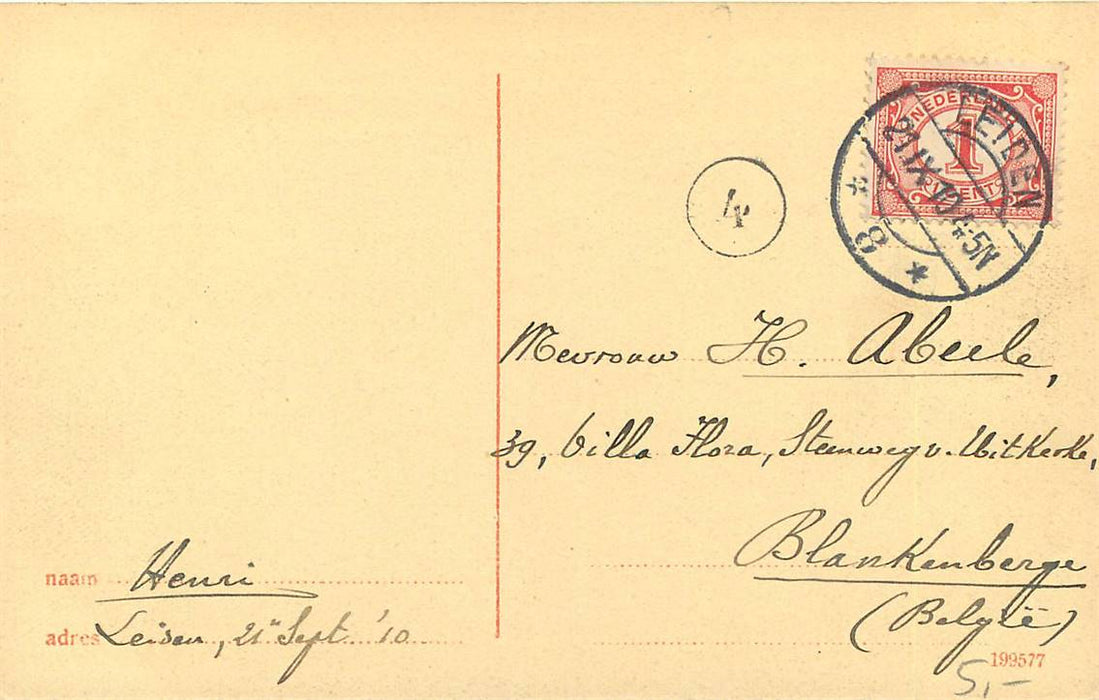 NEDERLAND
1
CENT
LEIDEN
21 IX 10 4-5N
* 8 *
4
Mevrouw H. Abeele,
39, Villa Flora, Steenweg v. Uitkerke,
Blankenberge
(België)
naam Henri
adres Leiden, 21" Sept '10
199577
5,-